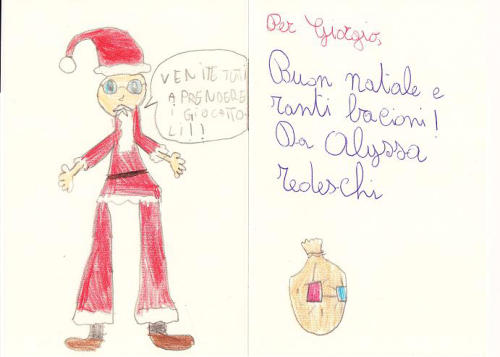 VENITE TUTTI
A PRENDERE
I GIOCATTO-
LI!!
Per Giorgio,
Buon natale e
tanti bacioni!
Da Alyssa
Tedeschi